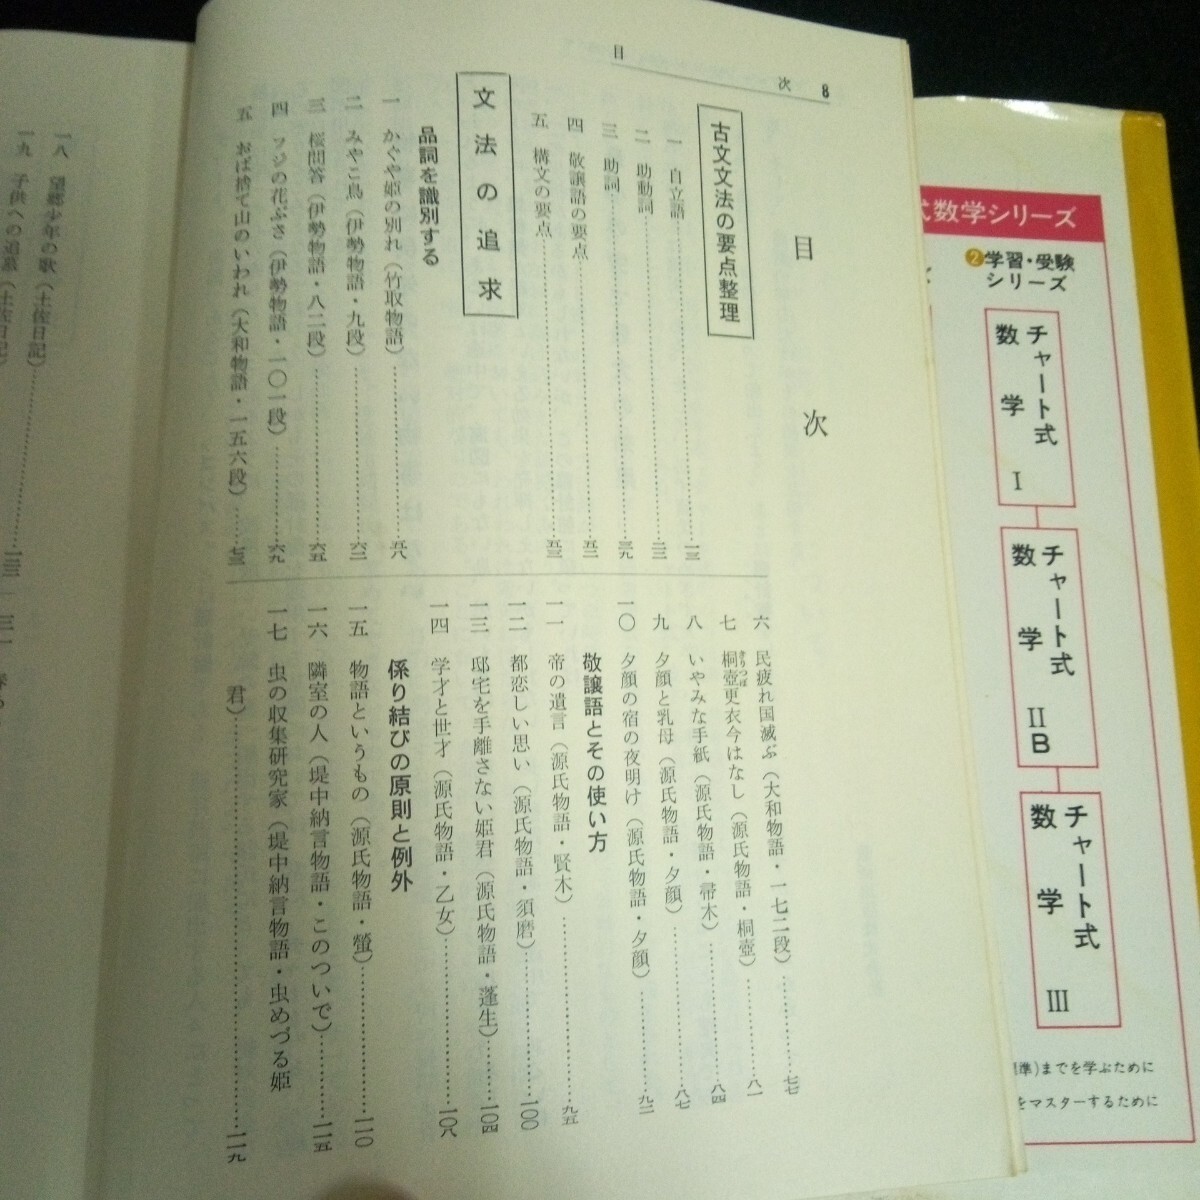 目次 8
目次
古文文法の要点整理
一 自立語……一三
二 助動詞……二三
三 助詞……三九
四 敬譲語の要点……五二
五 構文の要点……五三
文法の追求
品詞を識別する
一 かぐや姫の別れ(竹取物語)……五八
二 みやこ鳥(伊勢物語・九段)……六二
三 桜問答(伊勢物語・八二段)……六五
四 フジの花ぶさ(伊勢物語・一〇一段)……六九
五 おば捨て山のいわれ(大和物語・一五六段)……七三
六 民疲れ国滅ぶ(大和物語・一七二段)……七七
七 桐壺更衣今はなし(源氏物語・桐壺)……八一
きりつぼ
八 いやみな手紙(源氏物語・帚木)……八四
九 夕顔と乳母(源氏物語・夕顔)……八七
一〇 夕顔の宿の夜明け(源氏物語・夕顔)……九二
敬譲語とその使い方
一一 帝の遺言(源氏物語・賢木)……九五
一二 都恋しい思い(源氏物語・須磨)……一〇〇
一三 邸宅を手離さない姫君(源氏物語・蓬生)……一〇四
一四 学才と世才(源氏物語・乙女)……一〇八
係り結びの原則と例外
一五 物語というもの(源氏物語・螢)……一一〇
一六 隣室の人(堤中納言物語・このついで)……一一五
一七 虫の収集研究家(堤中納言物語・虫めづる姫
君)……一一九
一八 望郷少年の歌(土佐日記)……一二三
一九 子供への追慕(土佐日記)
式数学シリーズ
2 学習・受験
シリーズ
チャート式
数学 I
チャート式
数学 II B
チャート式
数学 III
準)までを学ぶために
をマスターするために